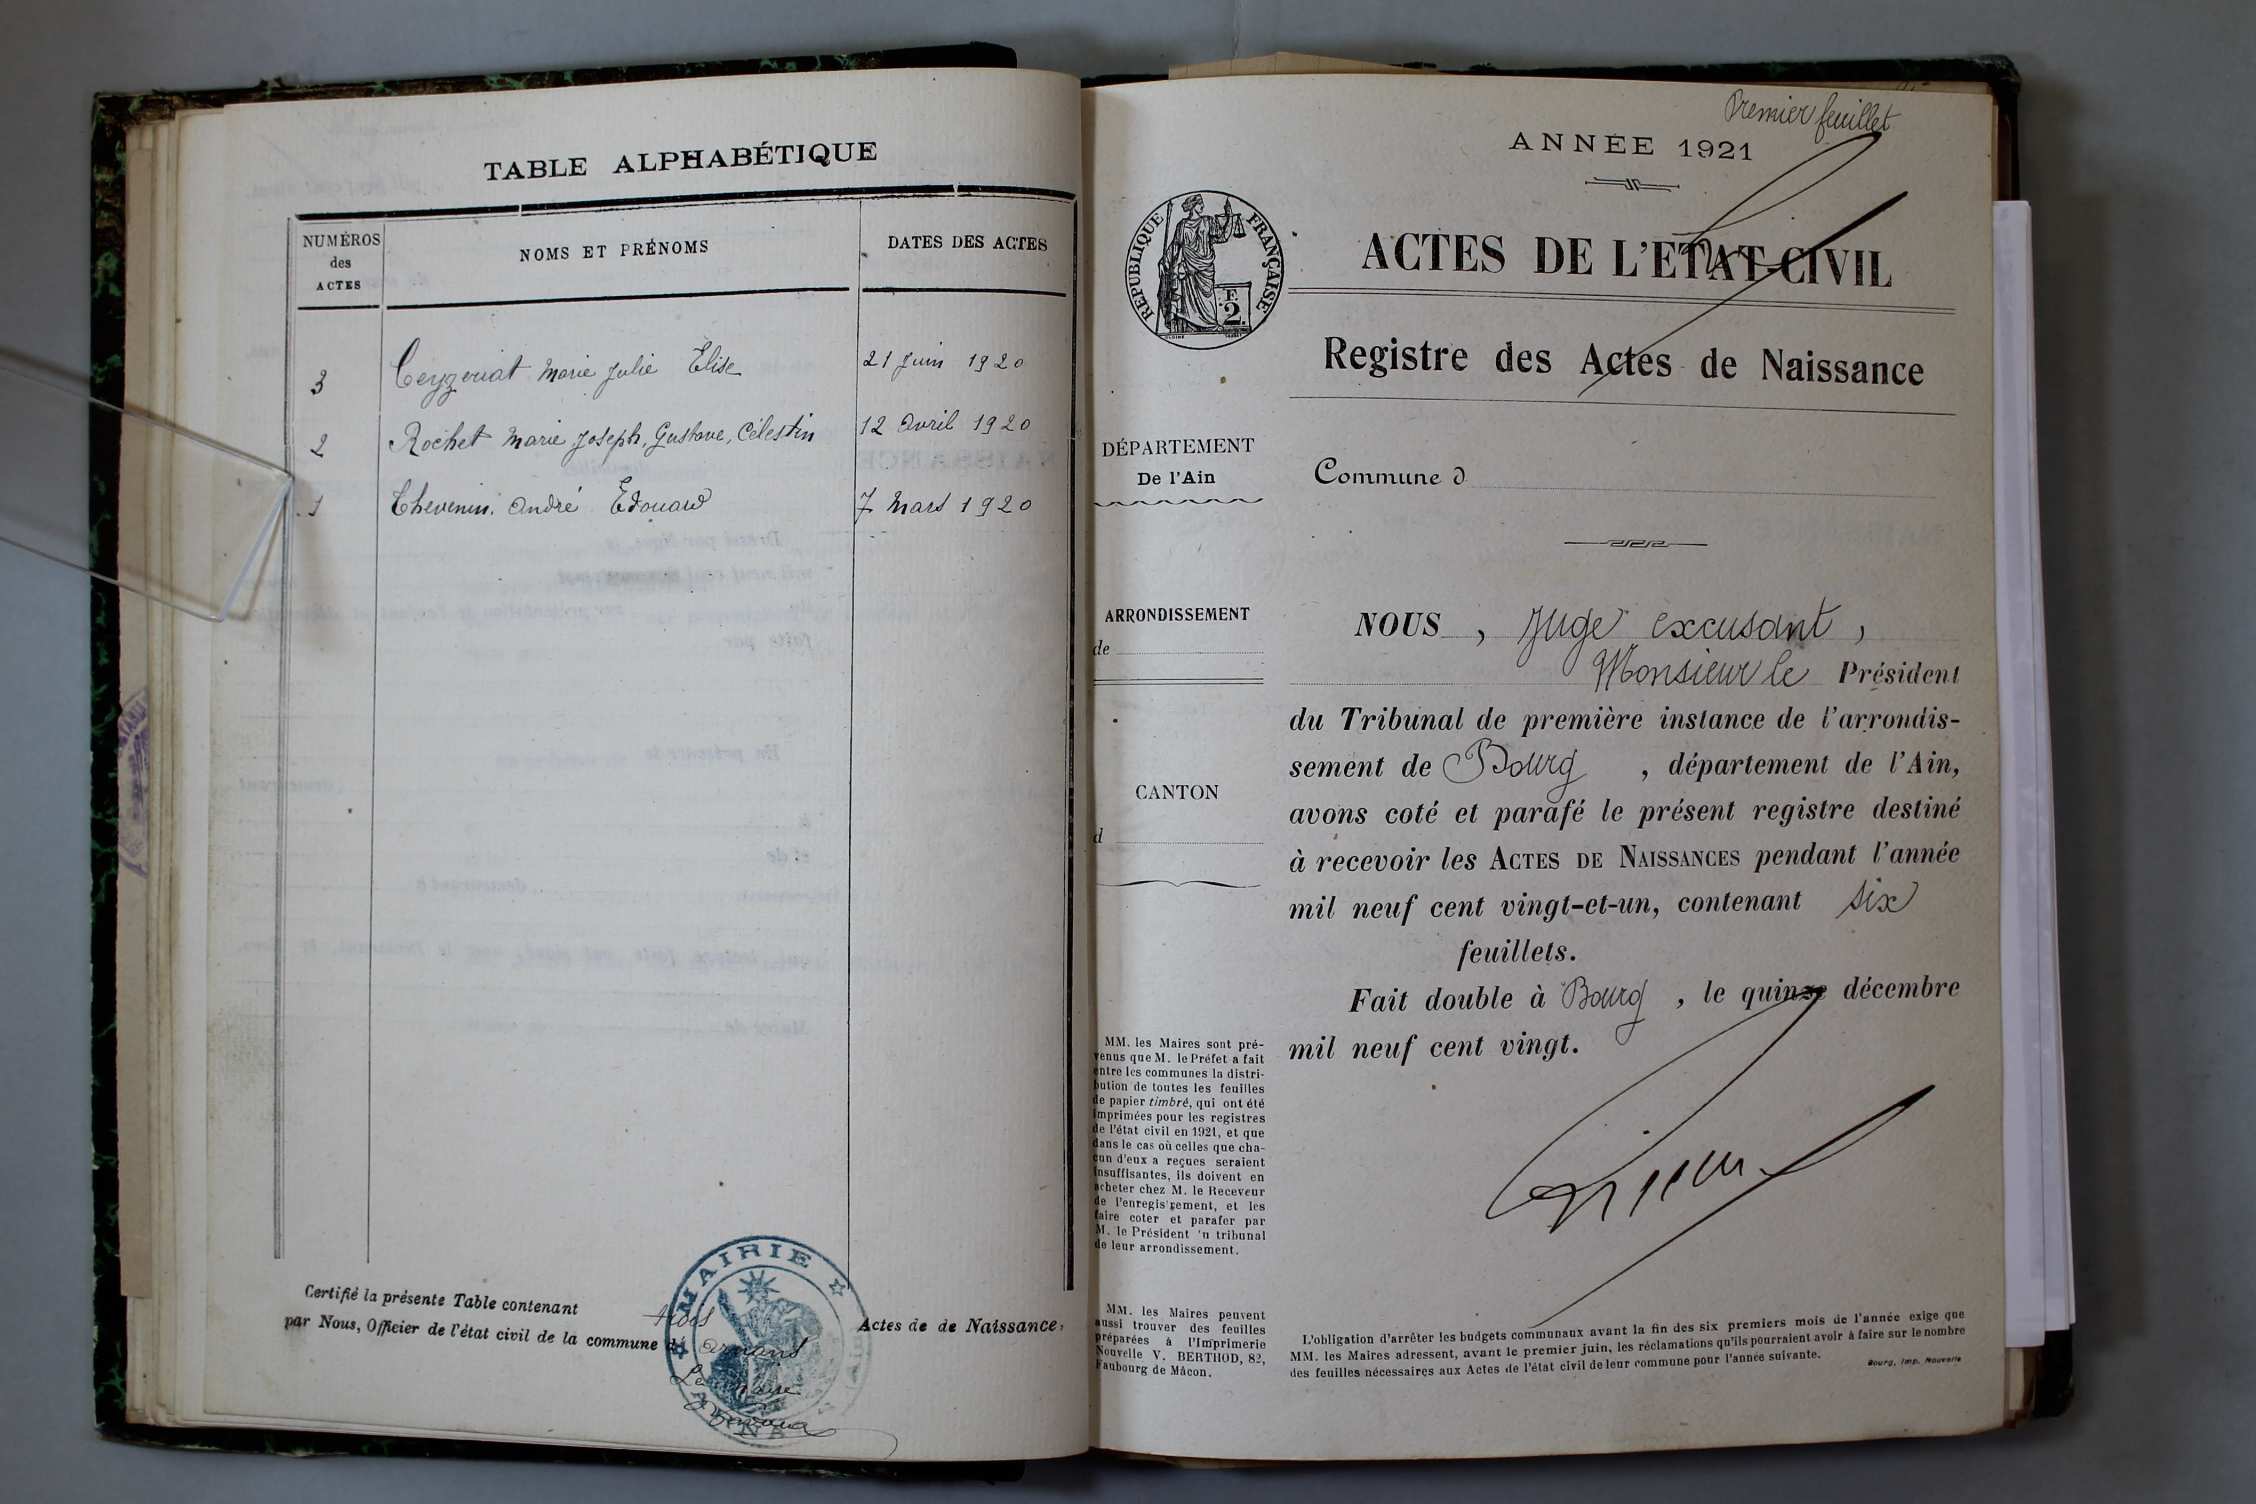 TABLE ALPHABÉTIQUE
NUMÉROS
des
ACTES
NOMS ET PRÉNOMS
DATES DES ACTES
3 Ceyzeriat Marie Julie Élise 21 Juin 1920
2 Rochet Marie Joseph, Gustave, Célestin 12 Avril 1920
1 Thevenin André Édouard 7 Mars 1920
Certifié la présente Table contenant trois Actes de de Naissance,
par Nous, Officier de l'état civil de la commune d'Arnans
Le Maire
MAIRIE
Premier feuillet
ANNÉE 1921
RÉPUBLIQUE FRANÇAISE
F.
2.
ACTES DE L'ÉTAT-CIVIL
Registre des Actes de Naissance
DÉPARTEMENT
De l'Ain
Commune d
ARRONDISSEMENT
de
CANTON
d
NOUS, Juge excusant,
Monsieur le Président
du Tribunal de première instance de l'arrondis-
sement de Bourg, département de l'Ain,
avons coté et parafé le présent registre destiné
à recevoir les ACTES DE NAISSANCES pendant l'année
mil neuf cent vingt-et-un, contenant six
feuillets.
Fait double à Bourg, le quinze décembre
mil neuf cent vingt.
MM. les Maires sont pré-
venus que M. le Préfet a fait
entre les communes la distri-
bution de toutes les feuilles
de papier timbré, qui ont été
imprimées pour les registres
de l'état civil en 1921, et que
dans le cas où celles que cha-
cun d'eux a reçues seraient
insuffisantes, ils doivent en
acheter chez M. le Receveur
de l'enregistrement, et les
faire coter et parafer par
M. le Président 'u tribunal
de leur arrondissement.
MM. les Maires peuvent
aussi trouver des feuilles
préparées à l'Imprimerie
Nouvelle V. BERTHOD, 82,
Faubourg de Mâcon.
L'obligation d'arrêter les budgets communaux avant la fin des six premiers mois de l'année exige que
MM. les Maires adressent, avant le premier juin, les réclamations qu'ils pourraient avoir à faire sur le nombre
des feuilles nécessaires aux Actes de l'état civil de leur commune pour l'année suivante.
Bourg, Imp. Nouvelle